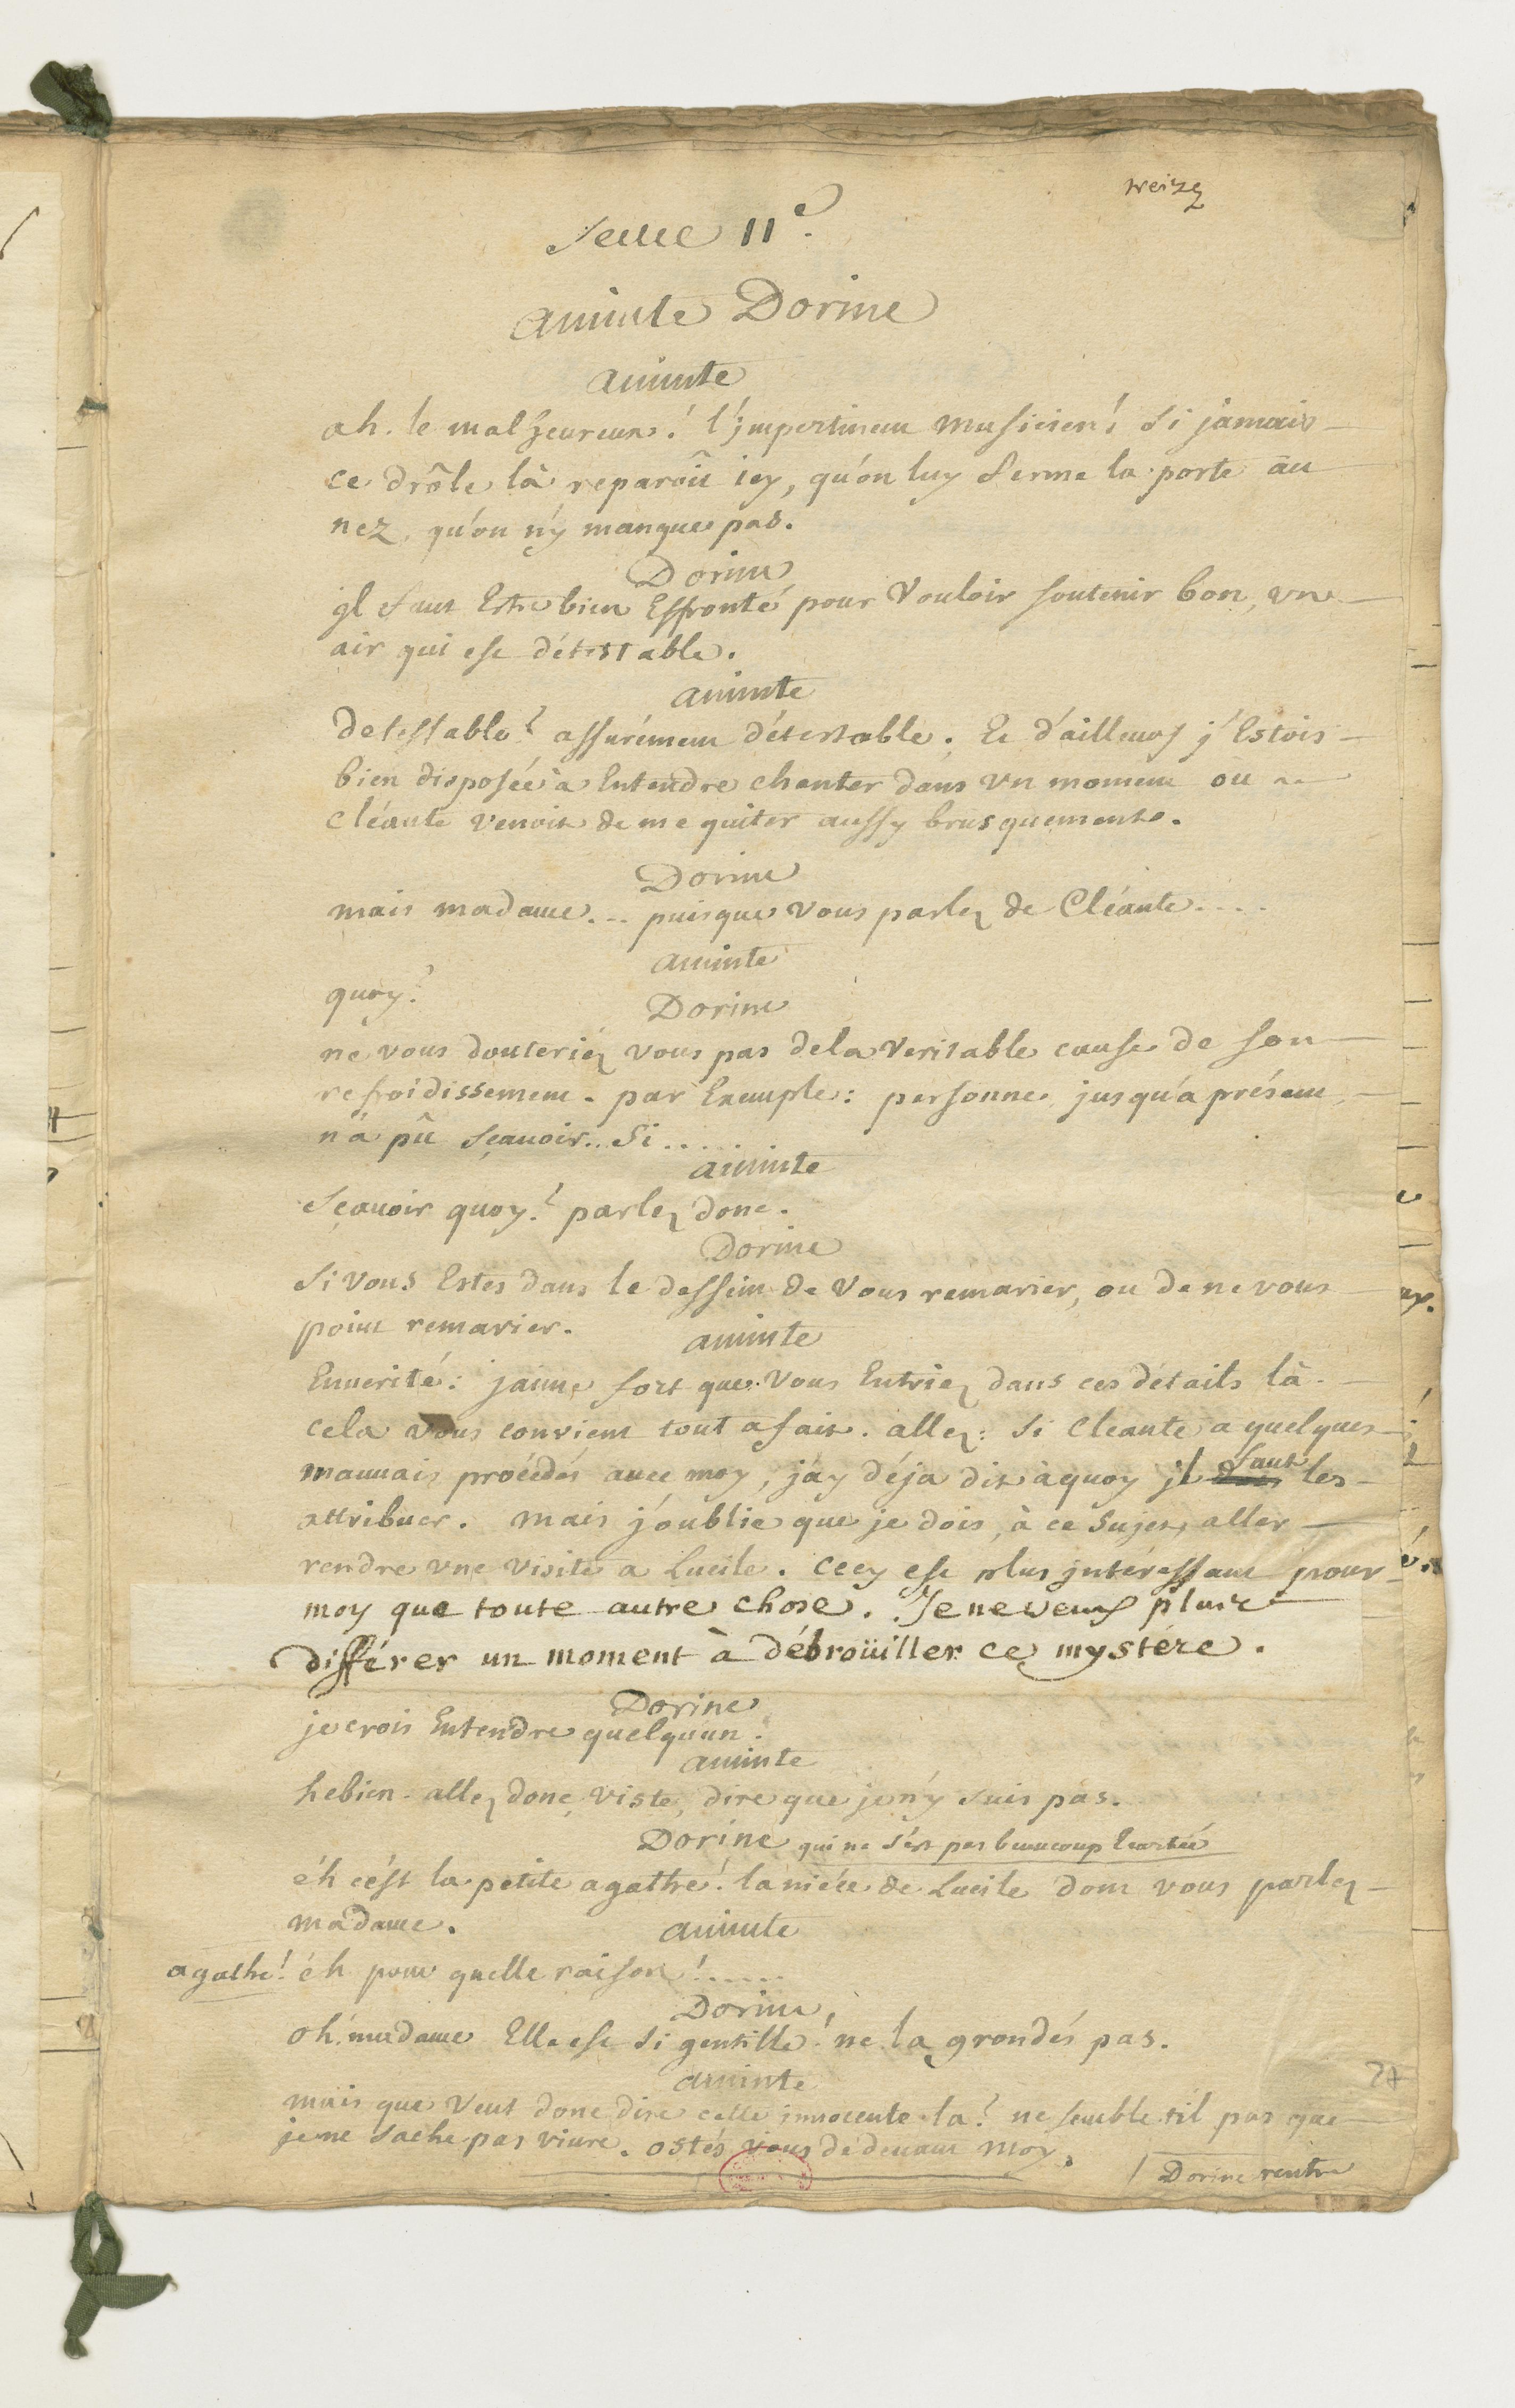 treize
Scene IIe.
aminte Dorine
aminte
ah. le malheureux! l'jmpertinent musicien! si jamais
ce drôle là reparôit icy, qu'on luy ferme la porte au
nez, qu'on n'y manque pas.
Dorine
jl faut Estre bien Effronté pour Vouloir soutenir bon, vn
air qui est détestable.
aminte
detestable? assurément détestable. Et d'ailleurs j'Estois
bien disposée à Entendre chanter dans vn moment où
cléante venoit de me quiter aussy brusquement.
Dorine
mais madame... puisque vous parlez de Cléante....
aminte
quoy?
Dorine
ne vous douteriéz vous pas dela Veritable cause de son
refroidissement. par Exemple: personne jusqu'a présent
n'a pû sçauoir.. si.....
aminte
sçauoir quoy? parlez donc.
Dorine
si vous Estes dans le dessein de Vous remarier, ou de ne vous
point remarier.
aminte
Enuerité: jaime fort que Vous Entriez dans ces détails là.
cela vous convient tout afait. allez: si cleante a quelques
mauuais procédés auec moy, j'ay déja dit àquoy jl faut les
attribuer. mais j'oublie que je dois, à ce sujet, aller
rendre vne visite a Lucile. cecy est plus jntéressant pour
moy que toute autre chose. Je ne veux plus
différer un moment à débroüiller ce mystére.
Dorine
je crois Entendre quelquun.
aminte
hebien. allez donc viste, dire que je n'y suis pas.
Dorine qui ne s'est pas beaucoup Ecartée
éh c'est la petite agathe! la niéce de Lucile dont vous parlez
madame.
aminte
agathe! éh pour quelle raison!......
Dorine
oh! madame Elle est si gentille! ne la grondés pas.
aminte
mais que Veut donc dire cette innocente la? ne semble t'il pas que
je ne sache pas viure. ostés vous de deuant moy.
Dorine rentre